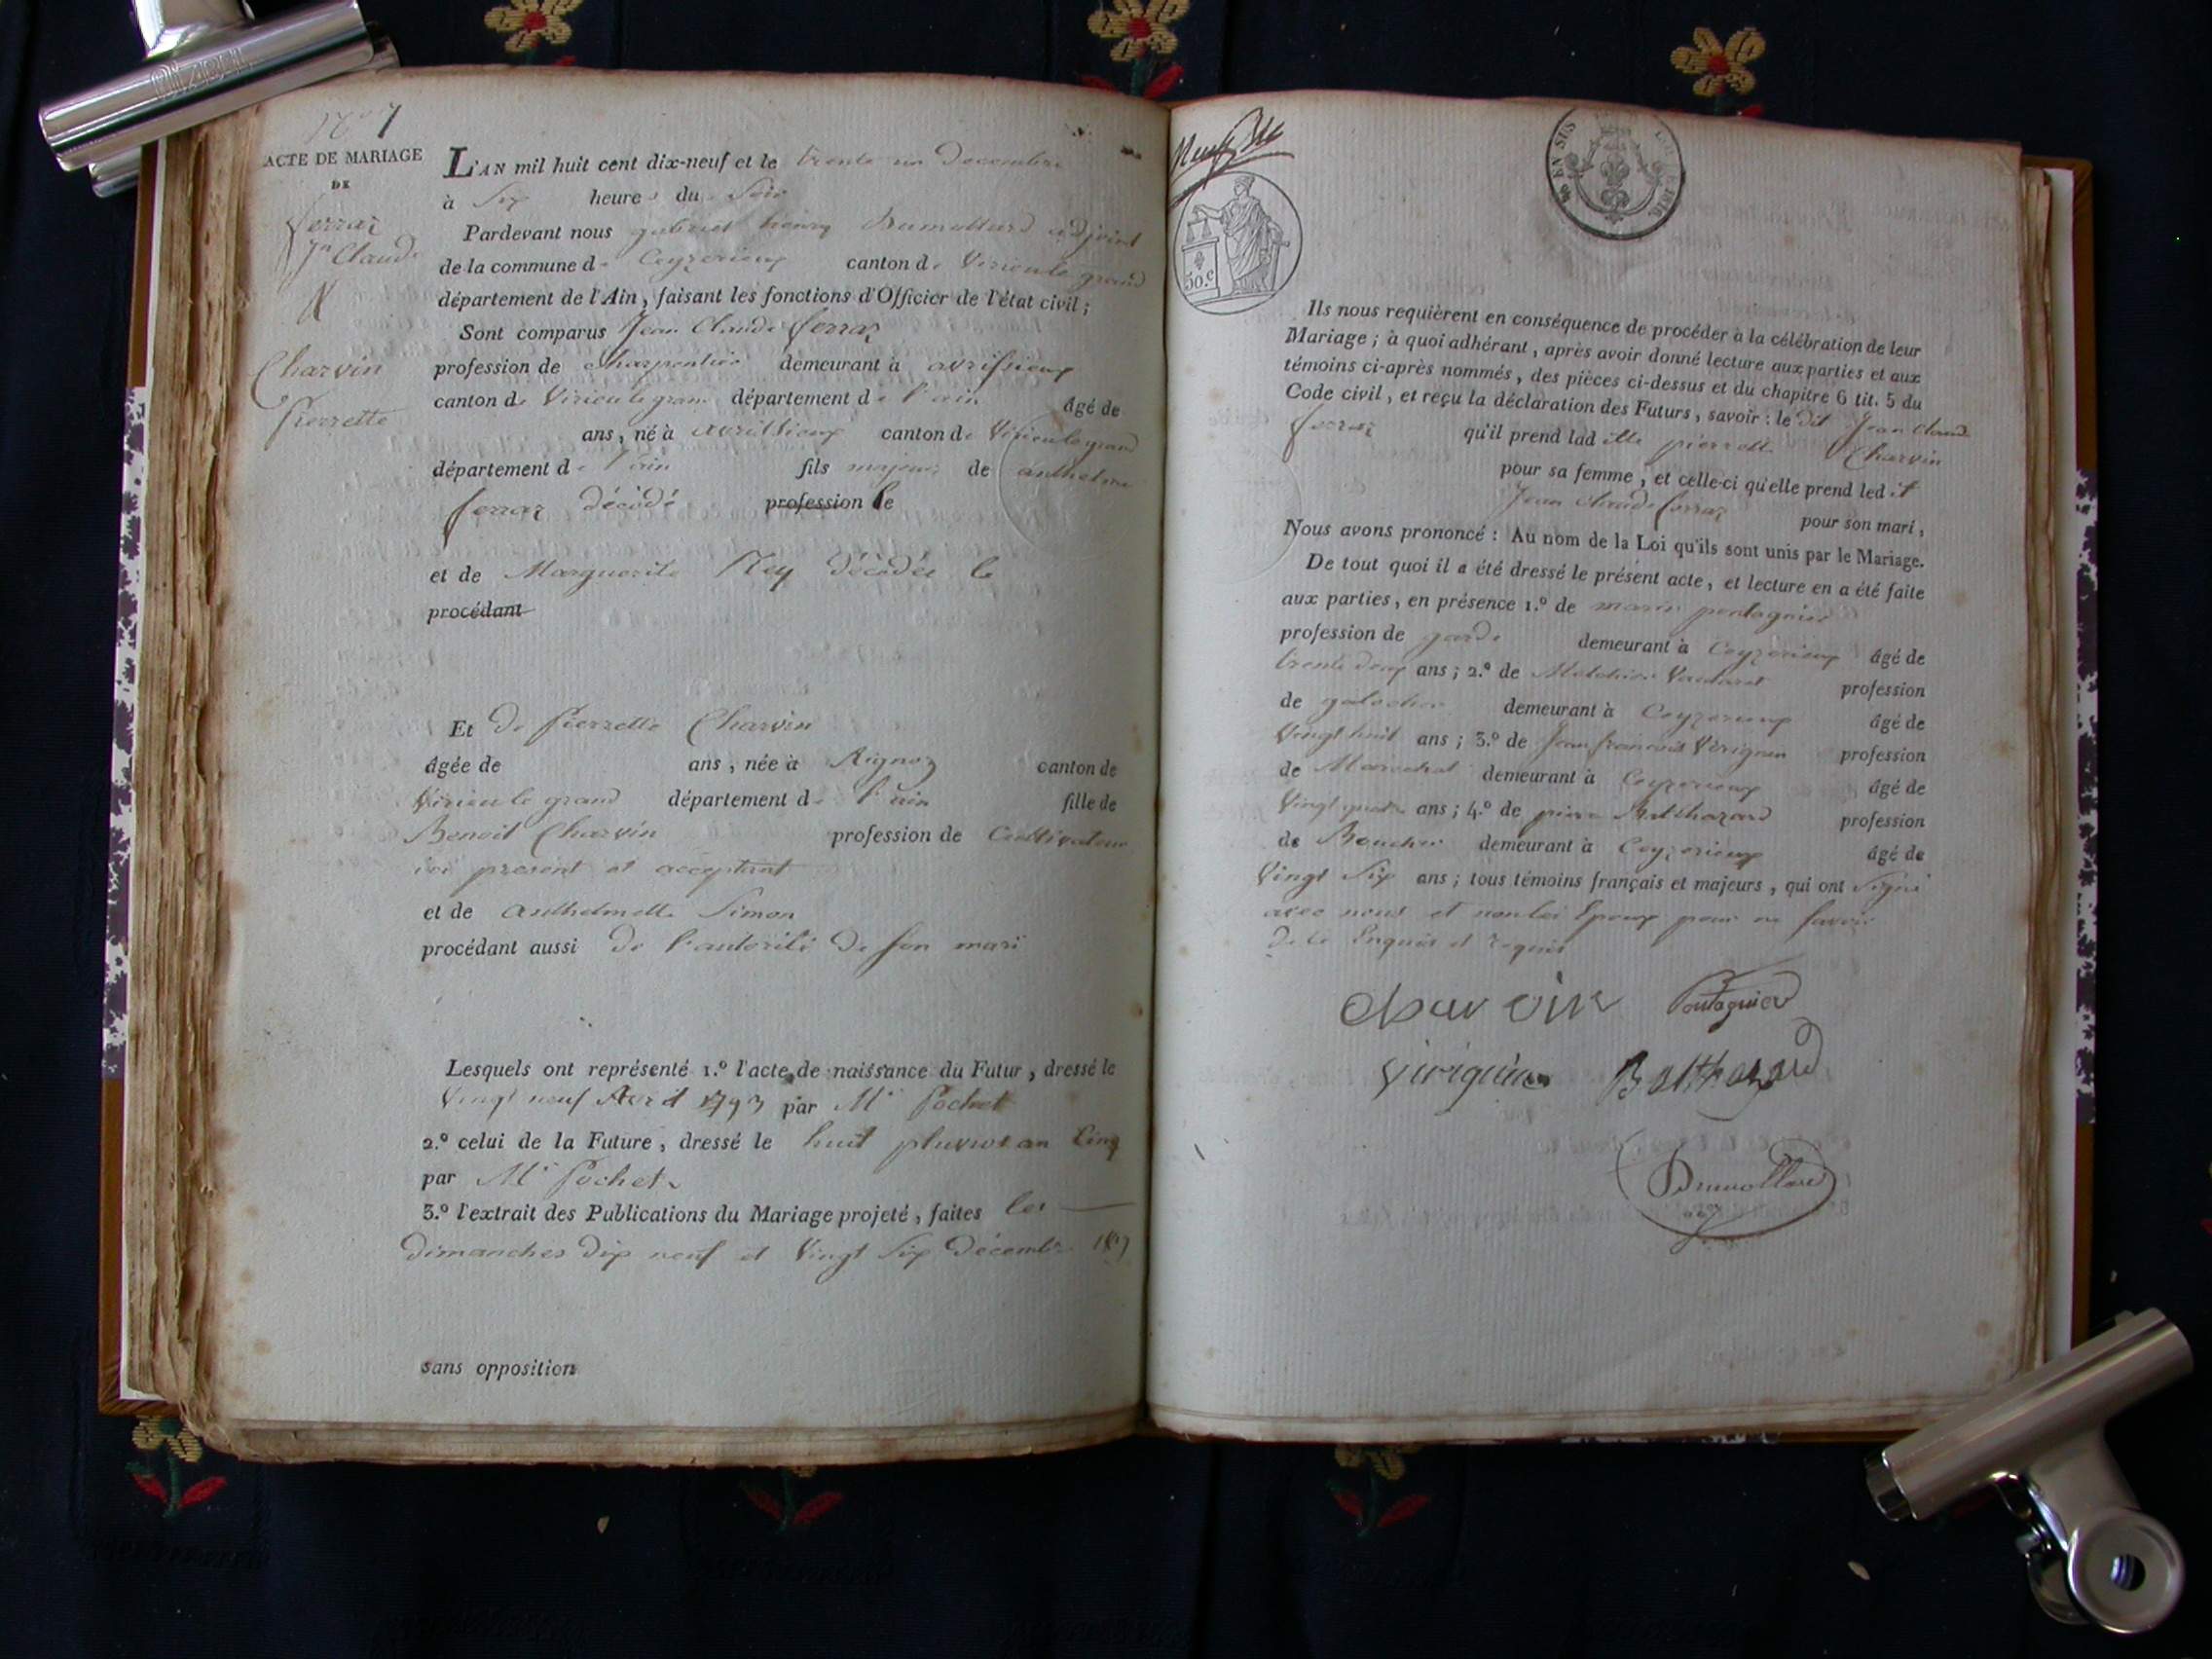 N° 7
ACTE DE MARIAGE
DE
ferraz
Jn Claude
&
Charvin
Pierrette
L'AN mil huit cent dix-neuf et le trente un Decembre
à Six heures du Soir
Pardevant nous gabriel henry Dumollard adjoint
de la commune de Ceyzerieux canton de Virieu le grand
département de l'Ain, faisant les fonctions d'Officier de l'état civil;
Sont comparus Jean Claude ferraz
profession de Charpentier demeurant à avrissieux
canton de Virieu le grand département de l'ain âgé de
ans, né à avrissieux canton de Virieu le grand
département de l'ain fils majeur de anthelme
ferraz décédé profession le
et de Marguerite Rey décédée le
procédant
Et de Pierrette Charvin
âgée de ans, née à Aignoz canton de
Virieu le grand département de l'ain fille de
Benoit Charvin profession de Cultivateur
ici present et acceptant
et de anthelmette Simon
procédant aussi de l'autorité de son mari
Lesquels ont représenté 1.º l'acte de naissance du Futur, dressé le
Vingt neuf Avril 1793 par Mr Pochet
2.º celui de la Future, dressé le huit pluviose an Cinq
par Mr Pochet
3.º l'extrait des Publications du Mariage projeté, faites les
dimanches dix neuf et Vingt Six décembre
sans opposition
EN SUS
30.c
Ils nous requièrent en conséquence de procéder à la célébration de leur
Mariage; à quoi adhérant, après avoir donné lecture aux parties et aux
témoins ci-après nommés, des pièces ci-dessus et du chapitre 6 tit. 5 du
Code civil, et reçu la déclaration des Futurs, savoir: le dit Jean Claude
ferraz qu'il prend lad itte pierrette Charvin
pour sa femme, et celle-ci qu'elle prend led it
Jean Claude ferraz pour son mari,
Nous avons prononcé: Au nom de la Loi qu'ils sont unis par le Mariage.
De tout quoi il a été dressé le présent acte, et lecture en a été faite
aux parties, en présence 1.º de marin pontagnier
profession de garde demeurant à Ceyzerieux âgé de
trente deux ans; 2.º de Melchior profession
de galocher demeurant à Ceyzerieux âgé de
Vingt huit ans; 3.º de Jean francois Virignin profession
de Marechal demeurant à Ceyzerieux âgé de
Vingt quatre ans; 4.º de pierre Balthazard profession
de Boucher demeurant à Ceyzerieux âgé de
Vingt Six ans; tous témoins français et majeurs, qui ont Signé
avec nous et non les Epoux pour ne savoir
de ce Enquis et requis
charvin Pontagnier
Virignin Balthazard
Dumollard